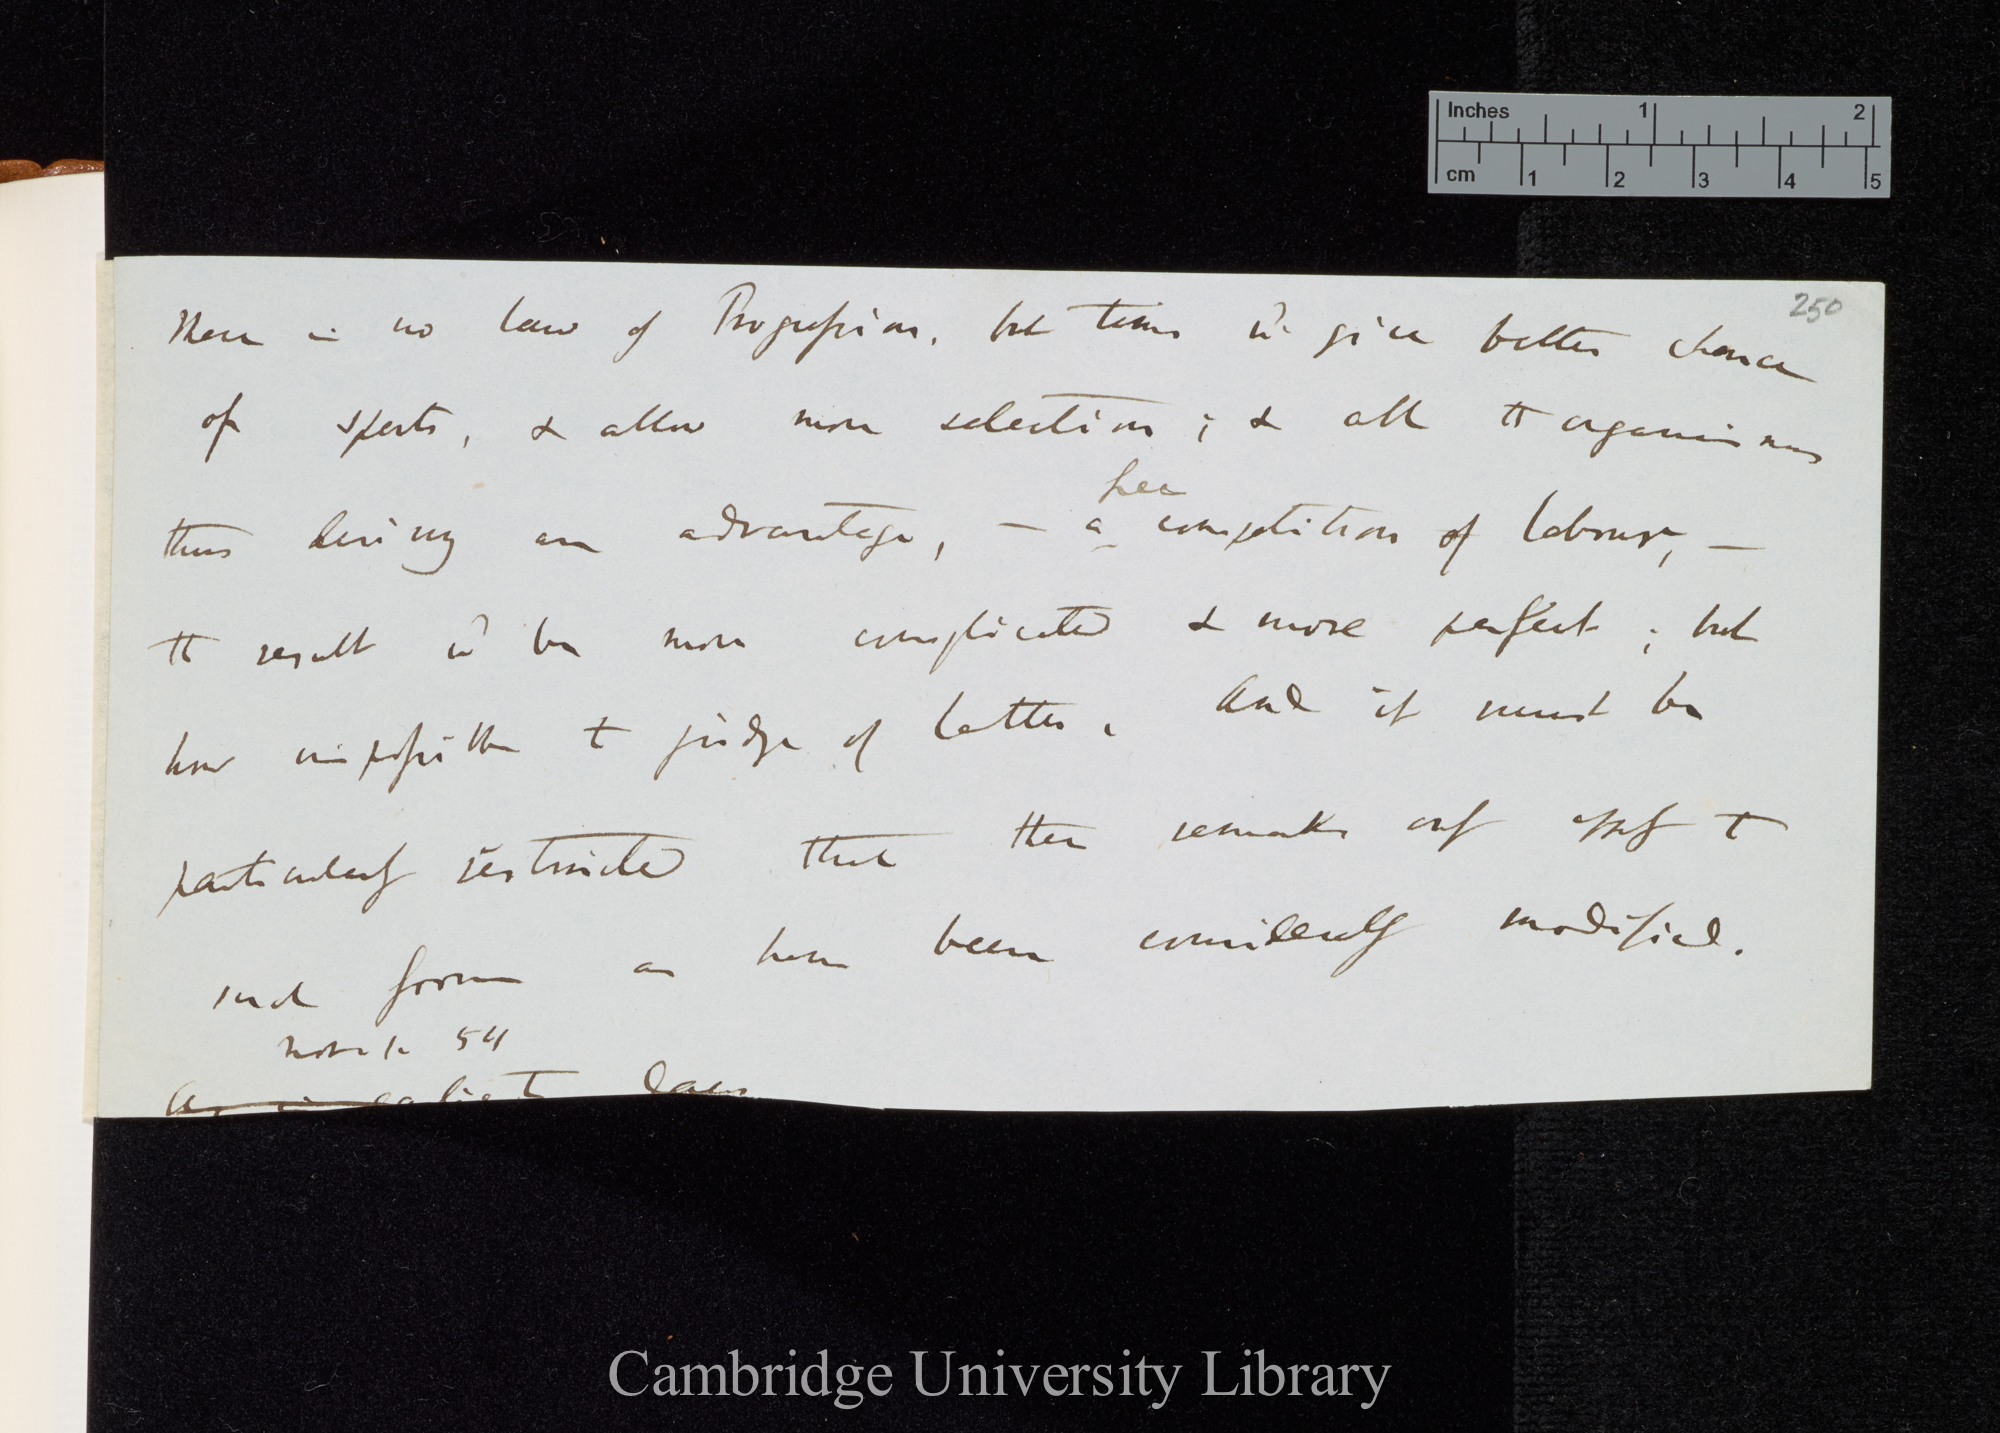 Inches 1 2
cm 1 2 3 4 5
250
There is no law of Progression, but times wd give better chance
of sports, & allow more selection; & all the organisms
thus having an advantage, — a free competition of labour, —
the result wd be more complicated & more perfect; but
how impossible to judge of better. And it must be
particularly restricted that these remarks only apply to
such forms as have been considerably modified.
54
laws
Cambridge University Library